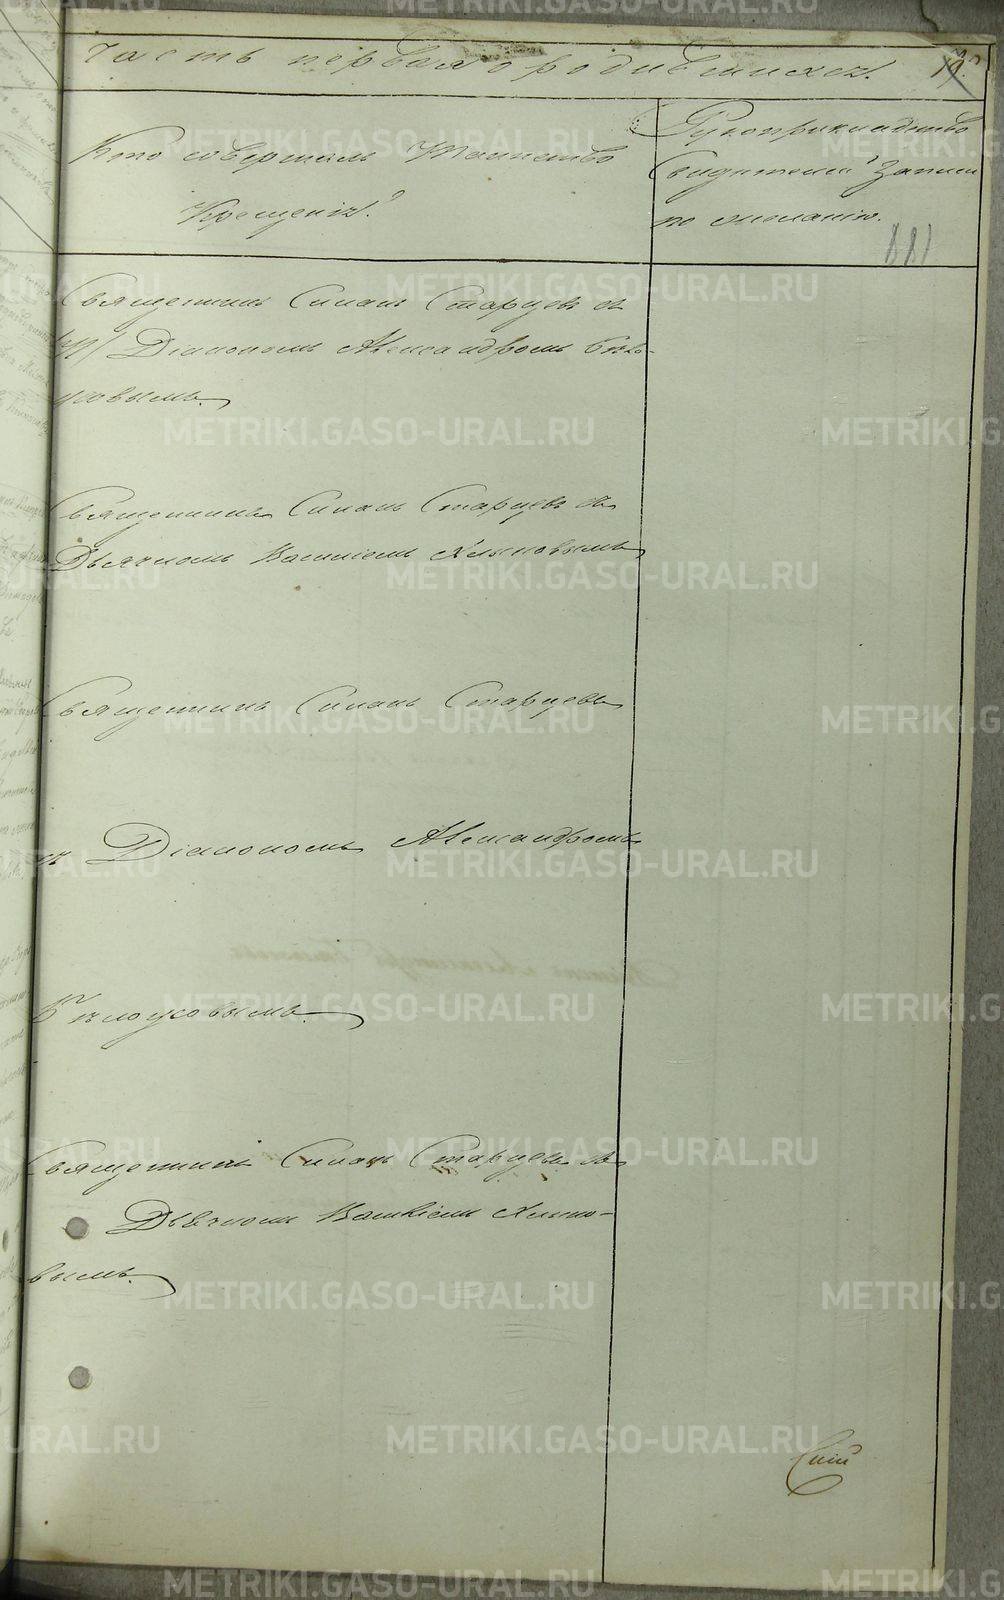 Часть первая о родившихся.
Кто совершалъ Таинство
Крещенія?
Рукоприкладство
Свидетелей Записи
по желанію.
188
Священникъ Симонъ Старцевъ съ
Діакономъ Александромъ Бѣло-
усовымъ.
Священникъ Симонъ Старцевъ съ
Дьячкомъ Василіемъ Хлыновымъ
Священникъ Симонъ Старцевъ
съ Діакономъ Александромъ
Бѣлоусовымъ.
Священникъ Симонъ Старцевъ съ
Дьячкомъ Василіемъ Хлыно-
вымъ.
Сій
METRIKI.GASO-URAL.RU